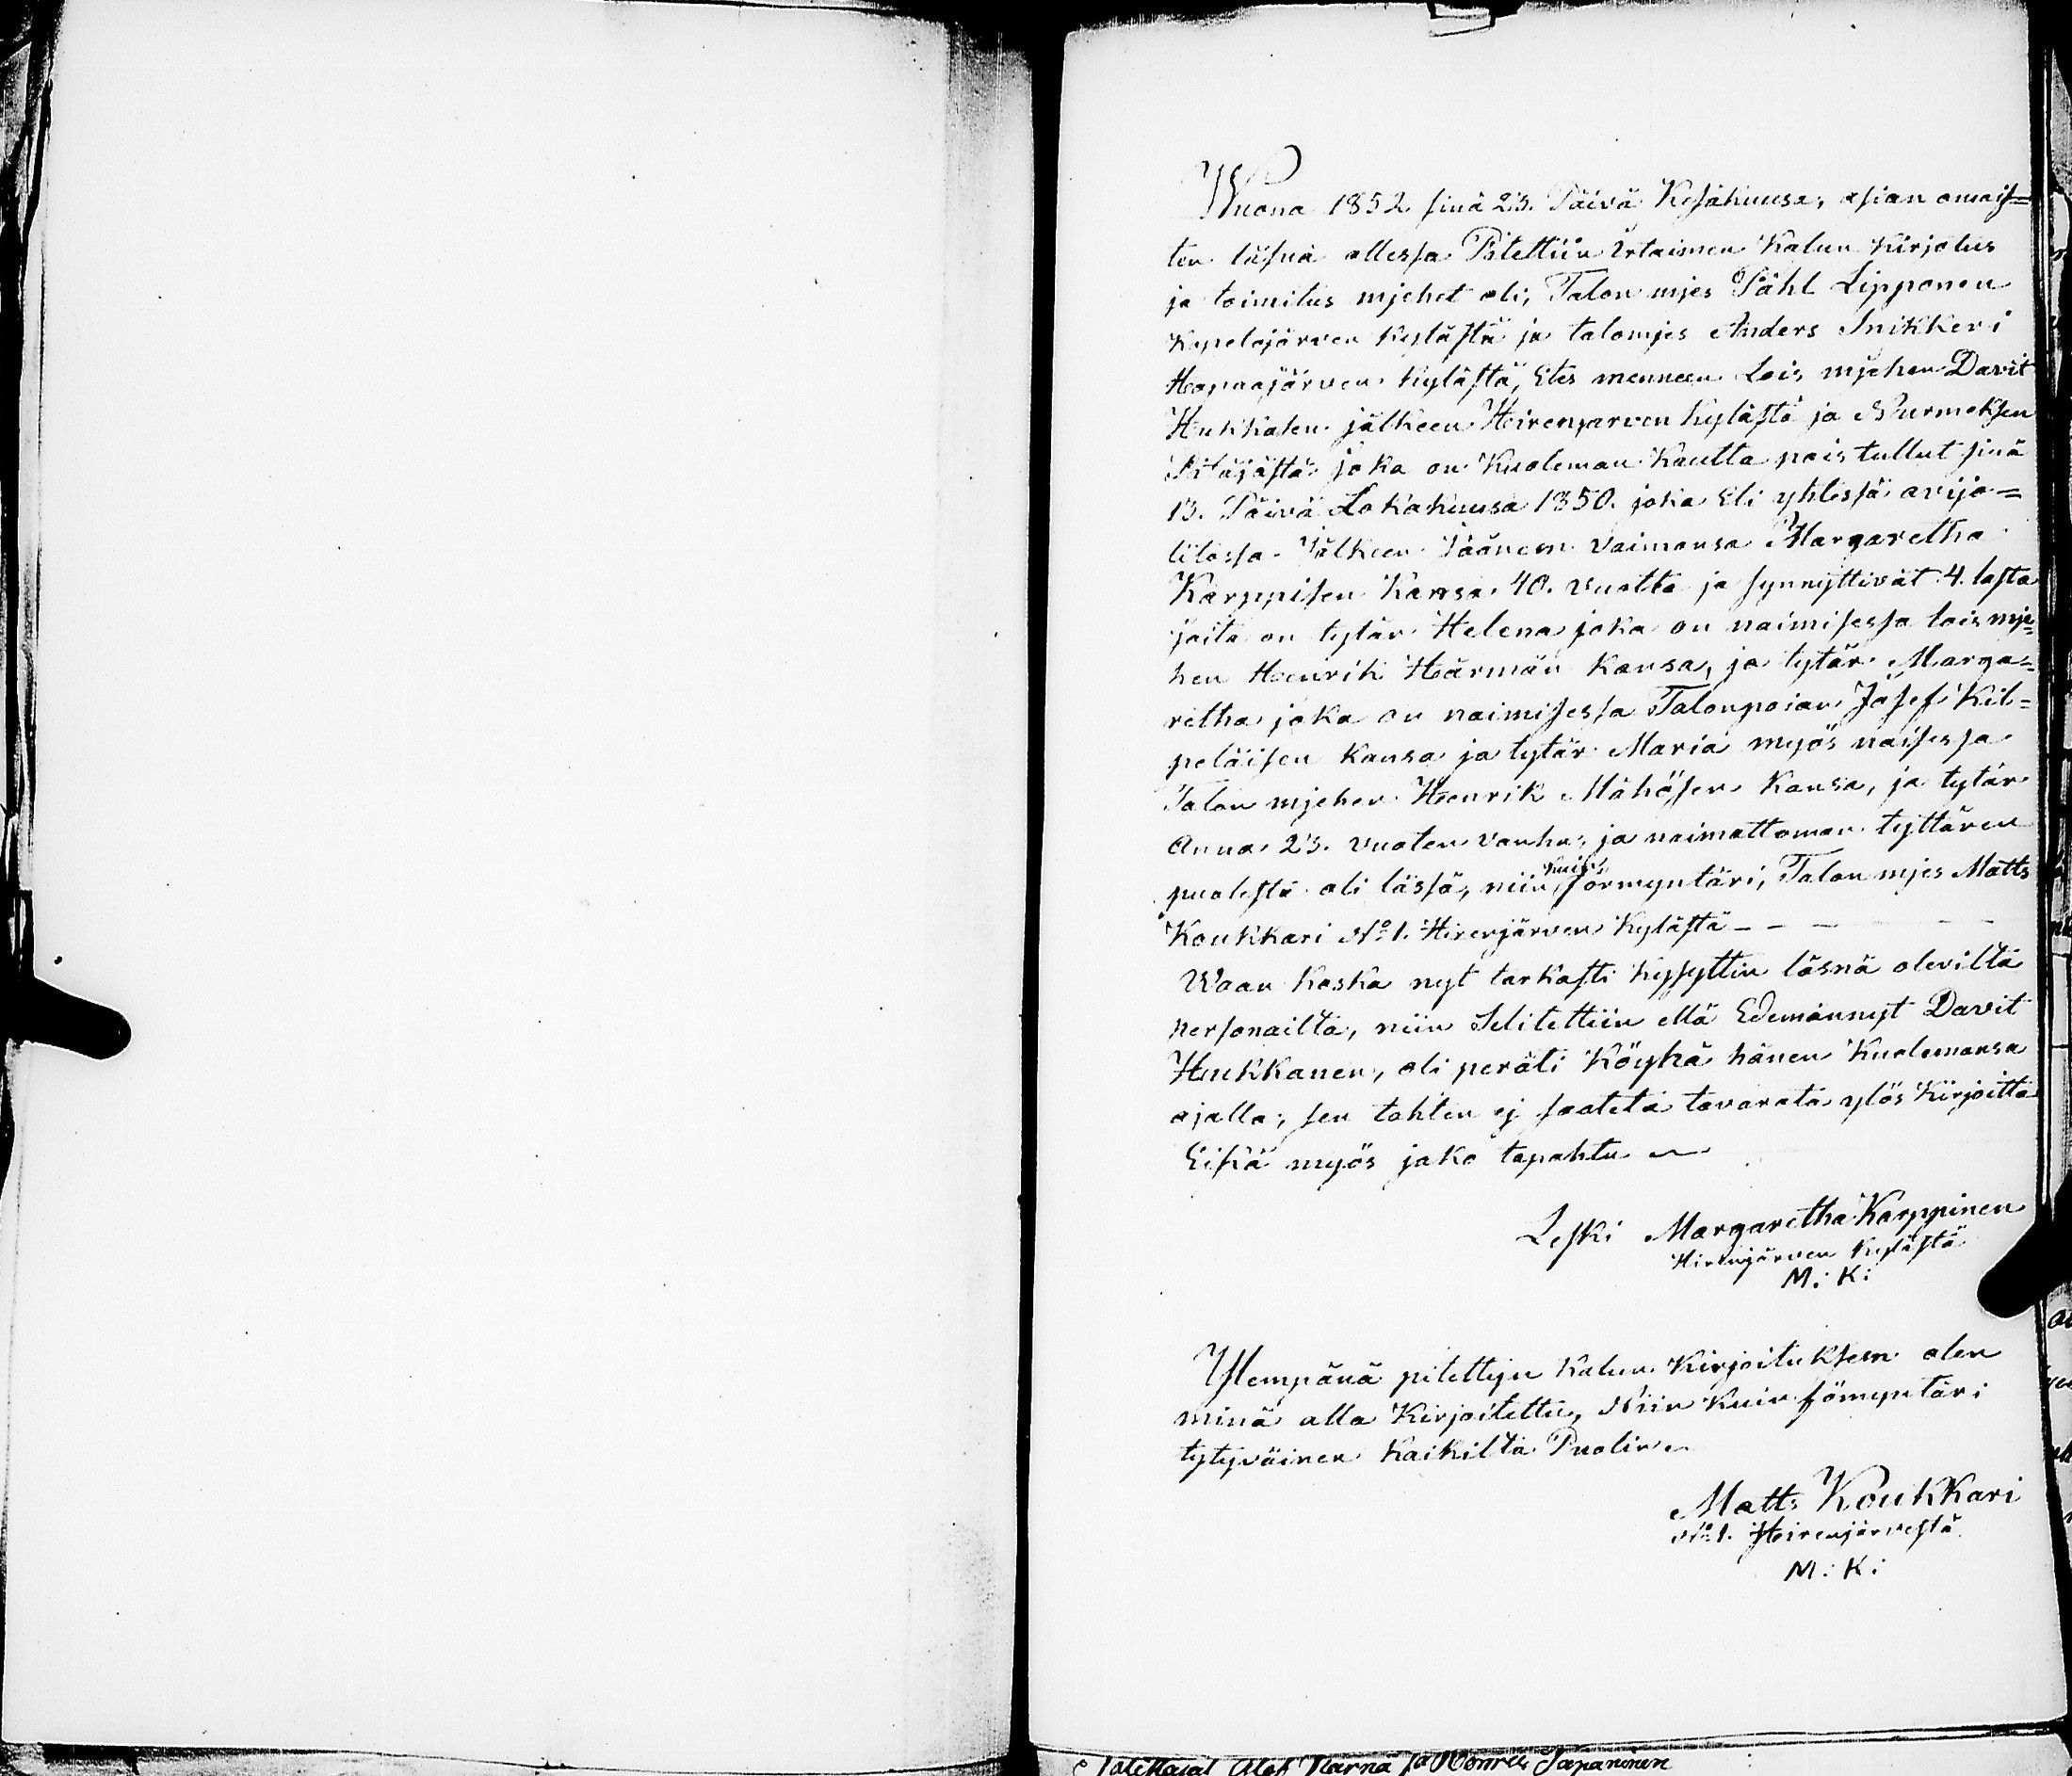 Wuona 1852 sinä 23. Päivä Kesäkuusa, asian omais=
ten läsnä ollessa Pitettiin Irtaimen Kalun Kirjotus
ja toimitus mjehet oli, Talon mjes Påhl Lipponen
Kypelojärven kylästä ja talomjes Anders Snikkeri
Haapaajärven kylästä, Etes menneen Lois mjehen Davit
Hukkasen jälkeen Heirenjarven kylästä ja Nurmeksen
Pitäjästä joka on Kuoleman Kautta pois tullut sinä
13. Päivä Lokakuusa 1850. joka Eli yhtessä avijo=
litossa Jälkeen Jäänem Vaimonsa Margaretha
Karppisen Kansa 40. vuotta ja synnyttivät 4. lasta
joita on tytär Helena joka on naimisessa lois mje=
hen Henrik Härmän kansa, ja tytär Marga=
retha joka on naimisessa Talonpoian Josef Kil=
peläisen Kansa ja tytär Maria myös naisessa
Talon mjehen Henrik Mähösen Kansa, ja tytär
Anna 23. vuoten vanha, ja naimattoman tyttären
puolesta oli lässä, niin kuin formyntäri, Talon mjes Matts
Koukkari No 1. Hirenjärven Kylästä - - -
Waan koska nyt tarkasti kysyttin läsnä olevilta
personailta, niin Selitettiin että Edemännyt Davit
Hukkanen, oli peräti Köyhä hänen Kuolemansa
ajalla, sen tähten ej saateta tavarata ylös Kirjoitta
Eikä myös jako tapahtu
Leski Margaretha Karppinen
Hirenjärven kylästä
M: K:
Ylempänä pitettyn Kalun Kirjoituksem olen
minä alla Kirjoitettu, Niin Kuin fömyntäri
tytyväinen Kaikilta Puolin
Matts Koukkari
No 1. Heirenjärvestä
M: K: